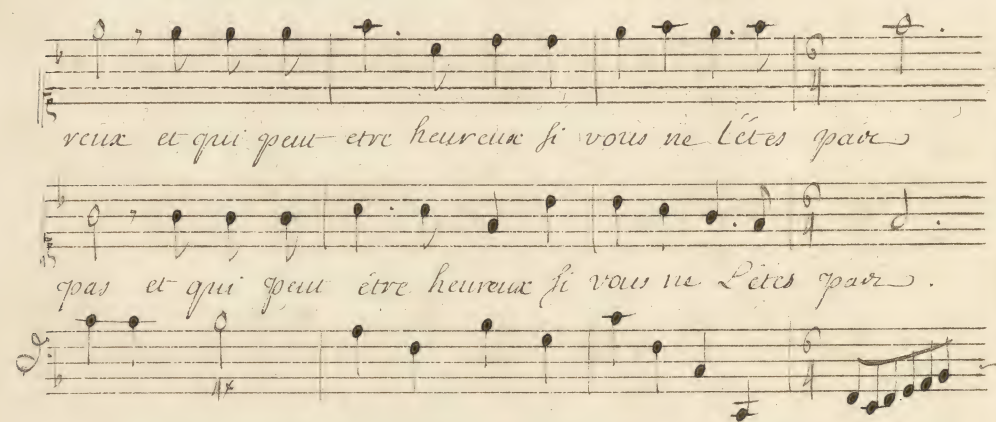 reux et qui peut etre heureux si vous ne l'êtes pas
pas et qui peut être heureux si vous ne L'êtes pas.